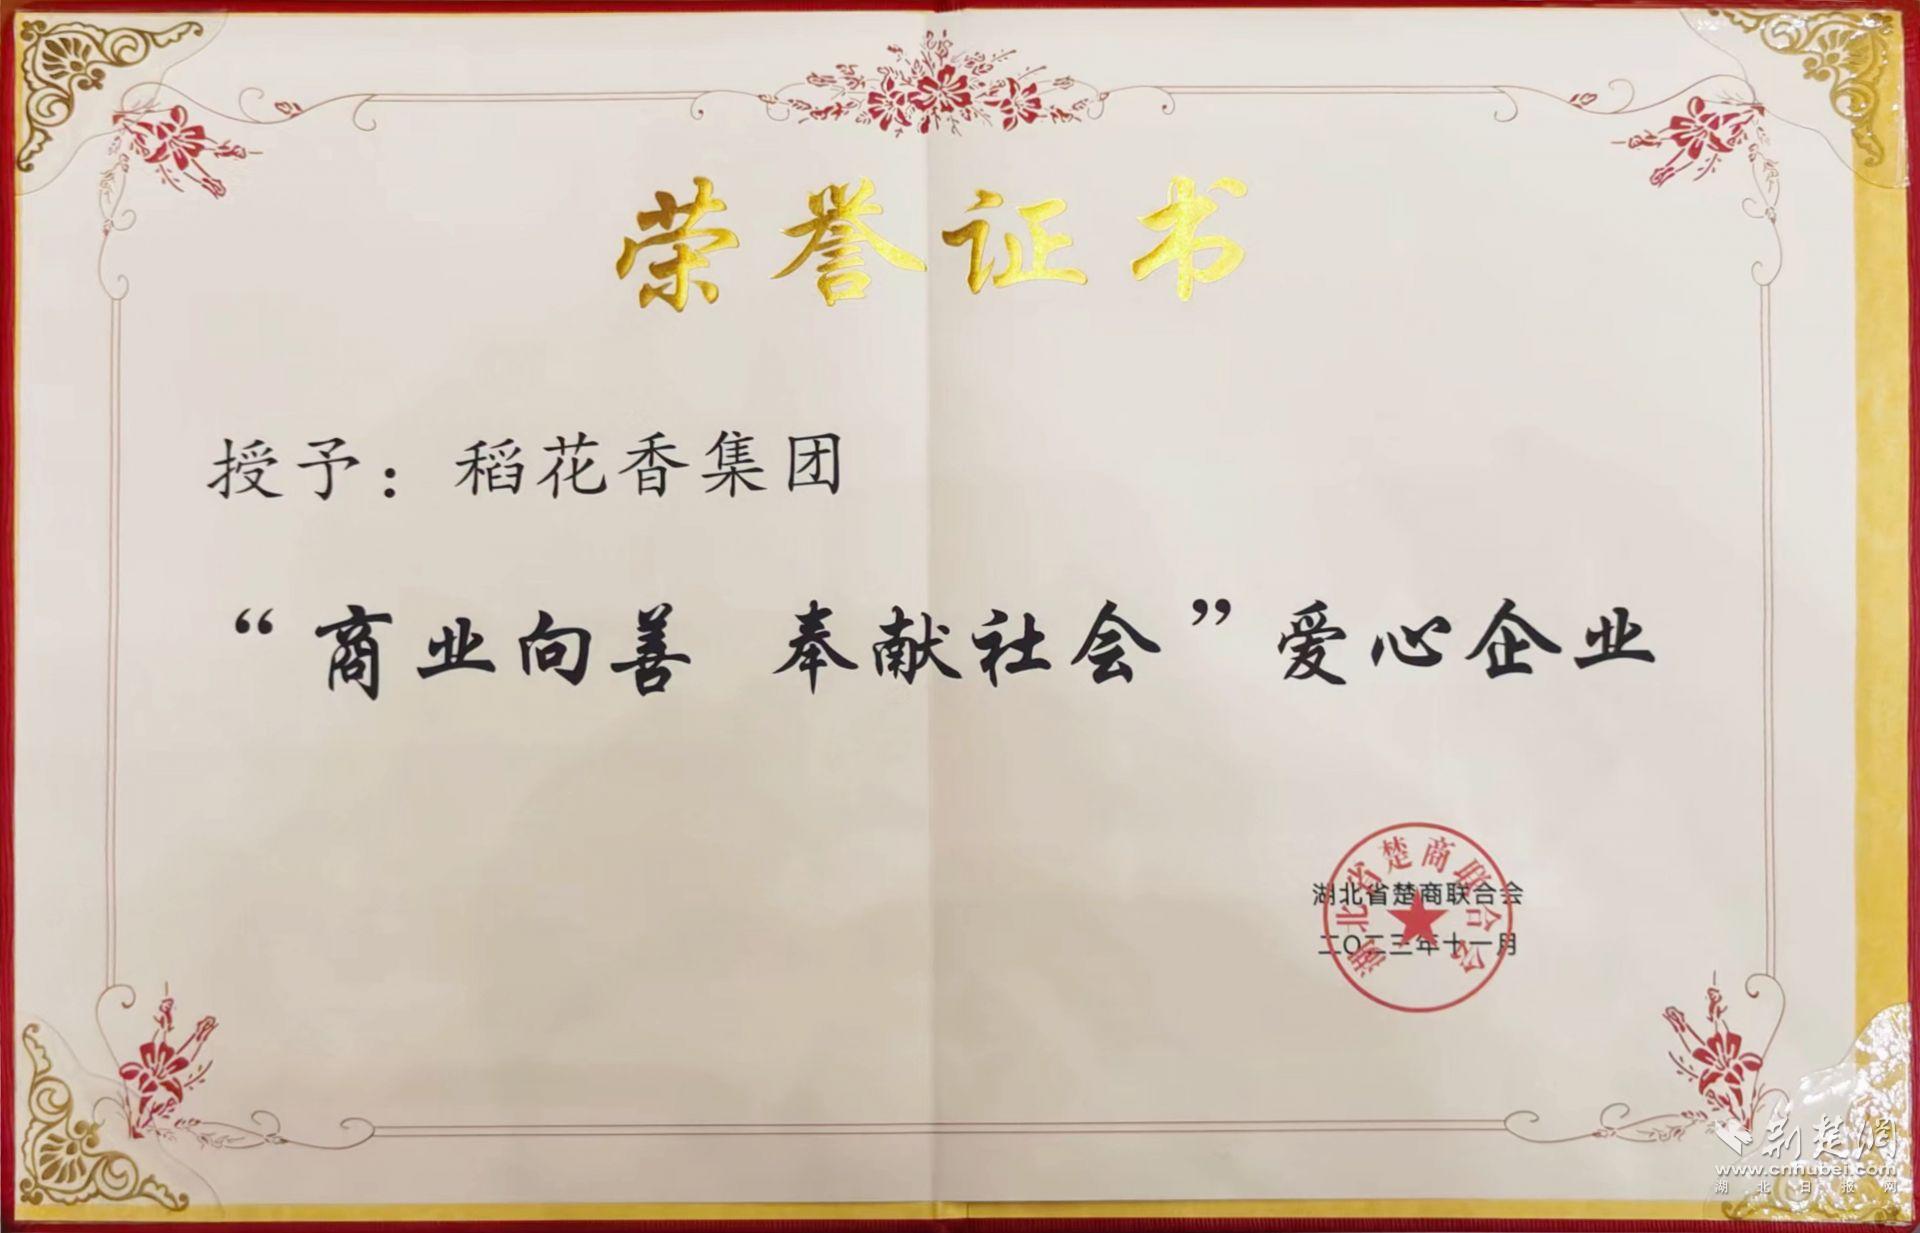 荣誉证书
授予：稻花香集团
“商业向善 奉献社会”爱心企业
湖北省楚商联合会
湖北省楚商联合会
二〇二三年十一月
荆楚网
www.cnhubei.com
湖北日报网